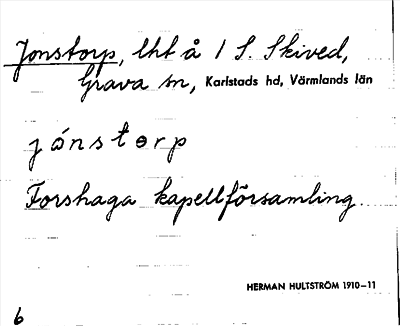 Jonstorp, lht å 1 S. Skived,
Grava sn, Karlstads hd, Värmlands län
jónstorp
Forshaga kapellförsamling
HERMAN HULTSTRÖM 1910–11
6